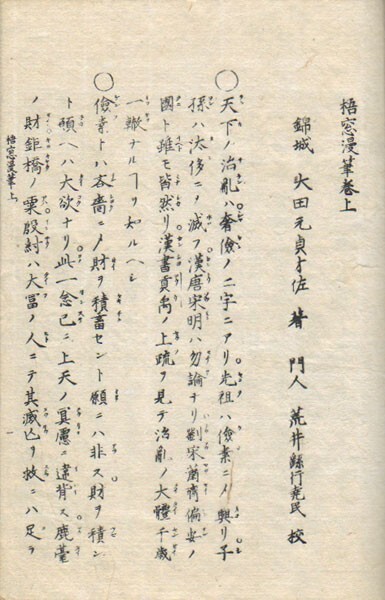 梧窓漫筆巻上
錦城 大田元貞才佐 著 門人 荒井繇行堯民 校
◯天下ノ治亂ハ奢儉ノ二字ニアリ先祖ハ儉素ニメ興リ子
孫ハ汰侈ニメ滅フ漢唐宋明ハ勿論ナリ劉宋蕭齊偏安ノ
國ト雖モ皆然リ漢書貢禹ノ上疏ヲ見テ治亂ノ大體千歳
一轍ナルヿヲ知ルヘシ
◯儉素トハ吝嗇ニメ財ヲ積畜セント願ニハ非ス財ヲ積ン
ト願ヘハ大欲ナリ此一念已ニ上天ノ冥慮ニ違背ス鹿臺
ノ財鉅橋ノ粟殷紂ハ大冨ノ人ニテ其滅亡ヲ救ニハ足ラ
梧窓漫筆上
一